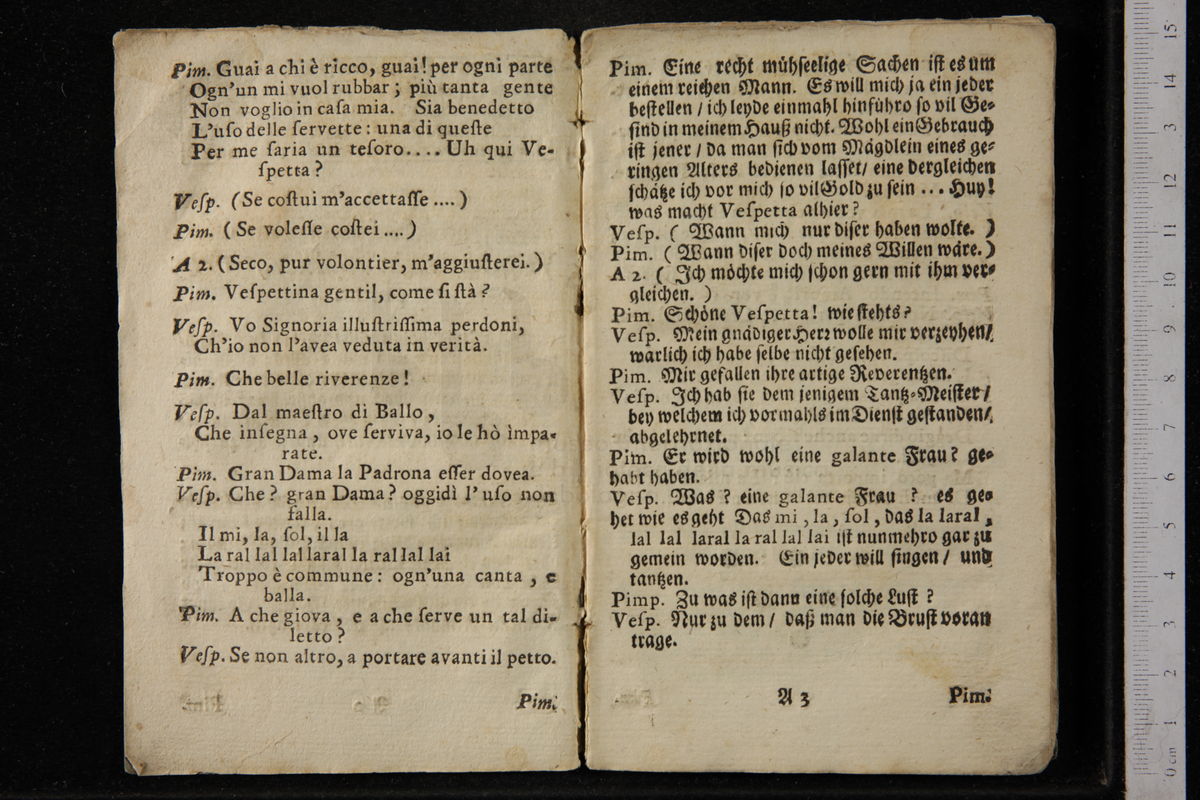 Pim. Guai a chi è ricco, guai! per ogni parte
Ogn'un mi vuol rubbar; più tanta gente
Non voglio in caſa mia. Sia benedetto
L'uſo delle ſervette: una di queſte
Per me ſaria un teſoro.... Uh qui Ve-
ſpetta?
Veſp. (Se coſtui m'accettaſſe....)
Pim. (Se voleſſe coſtei....)
A 2. (Seco, pur volontier, m'aggiuſterei.)
Pim. Veſpettina gentil, come ſi ſtà?
Veſp. Vo Signoria illuſtriſſima perdoni,
Ch'io non l'avea veduta in verità.
Pim. Che belle riverenze!
Veſp. Dal maeſtro di Ballo,
Che inſegna, ove ſerviva, io le hò impa-
rate.
Pim. Gran Dama la Padrona eſſer dovea.
Veſp. Che? gran Dama? oggidì l'uſo non
falla.
Il mi, la, ſol, il la
La ral lal lal laral la ral lal lai
Troppo è commune: ogn'una canta, e
balla.
Pim. A che giova, e a che ſerve un tal di-
letto?
Veſp. Se non altro, a portare avanti il petto.
Pim.
Pim. Eine recht mühſeelige Sachen iſt es um
einem reichen Mann. Es will mich ja ein jeder
beſtellen / ich leyde einmahl hinführo ſo vil Ge-
ſind in meinem Hauß nicht. Wohl ein Gebrauch
iſt jener / da man ſich vom Mägdlein eines ge-
ringen Alters bedienen laſſet / eine dergleichen
ſchätze ich vor mich ſo vil Gold zu ſein ... Huy!
was macht Veſpetta alhier?
Veſp. ( Wann mich nur diſer haben wolte. )
Pim. ( Wann diſer doch meines Willen wäre. )
A 2. ( Ich möchte mich ſchon gern mit ihm ver-
gleichen. )
Pim. Schöne Veſpetta! wie ſtehts?
Veſp. Mein gnädiger Herz wolle mir verzeyhen /
warlich ich habe ſelbe nicht geſehen.
Pim. Mir gefallen ihre artige Reverentzen.
Veſp. Ich hab ſie dem jenigem Tantz-Meiſter /
bey welchem ich vormahls im Dienſt geſtanden /
abgelehrnet.
Pim. Er wird wohl eine galante Frau? ge-
habt haben.
Veſp. Was? eine galante Frau? es ge-
het wie es geht Das mi, la, ſol, das la laral,
lal lal laral la ral lal lai iſt nunmehro gar zu
gemein worden. Ein jeder will ſingen / und
tantzen.
Pimp. Zu was iſt dann eine ſolche Luſt?
Veſp. Nur zu dem / daß man die Bruſt voran
trage.
A 3 Pim.
0 cm 1 2 3 4 5 6 7 8 9 10 11 12 13 14 15